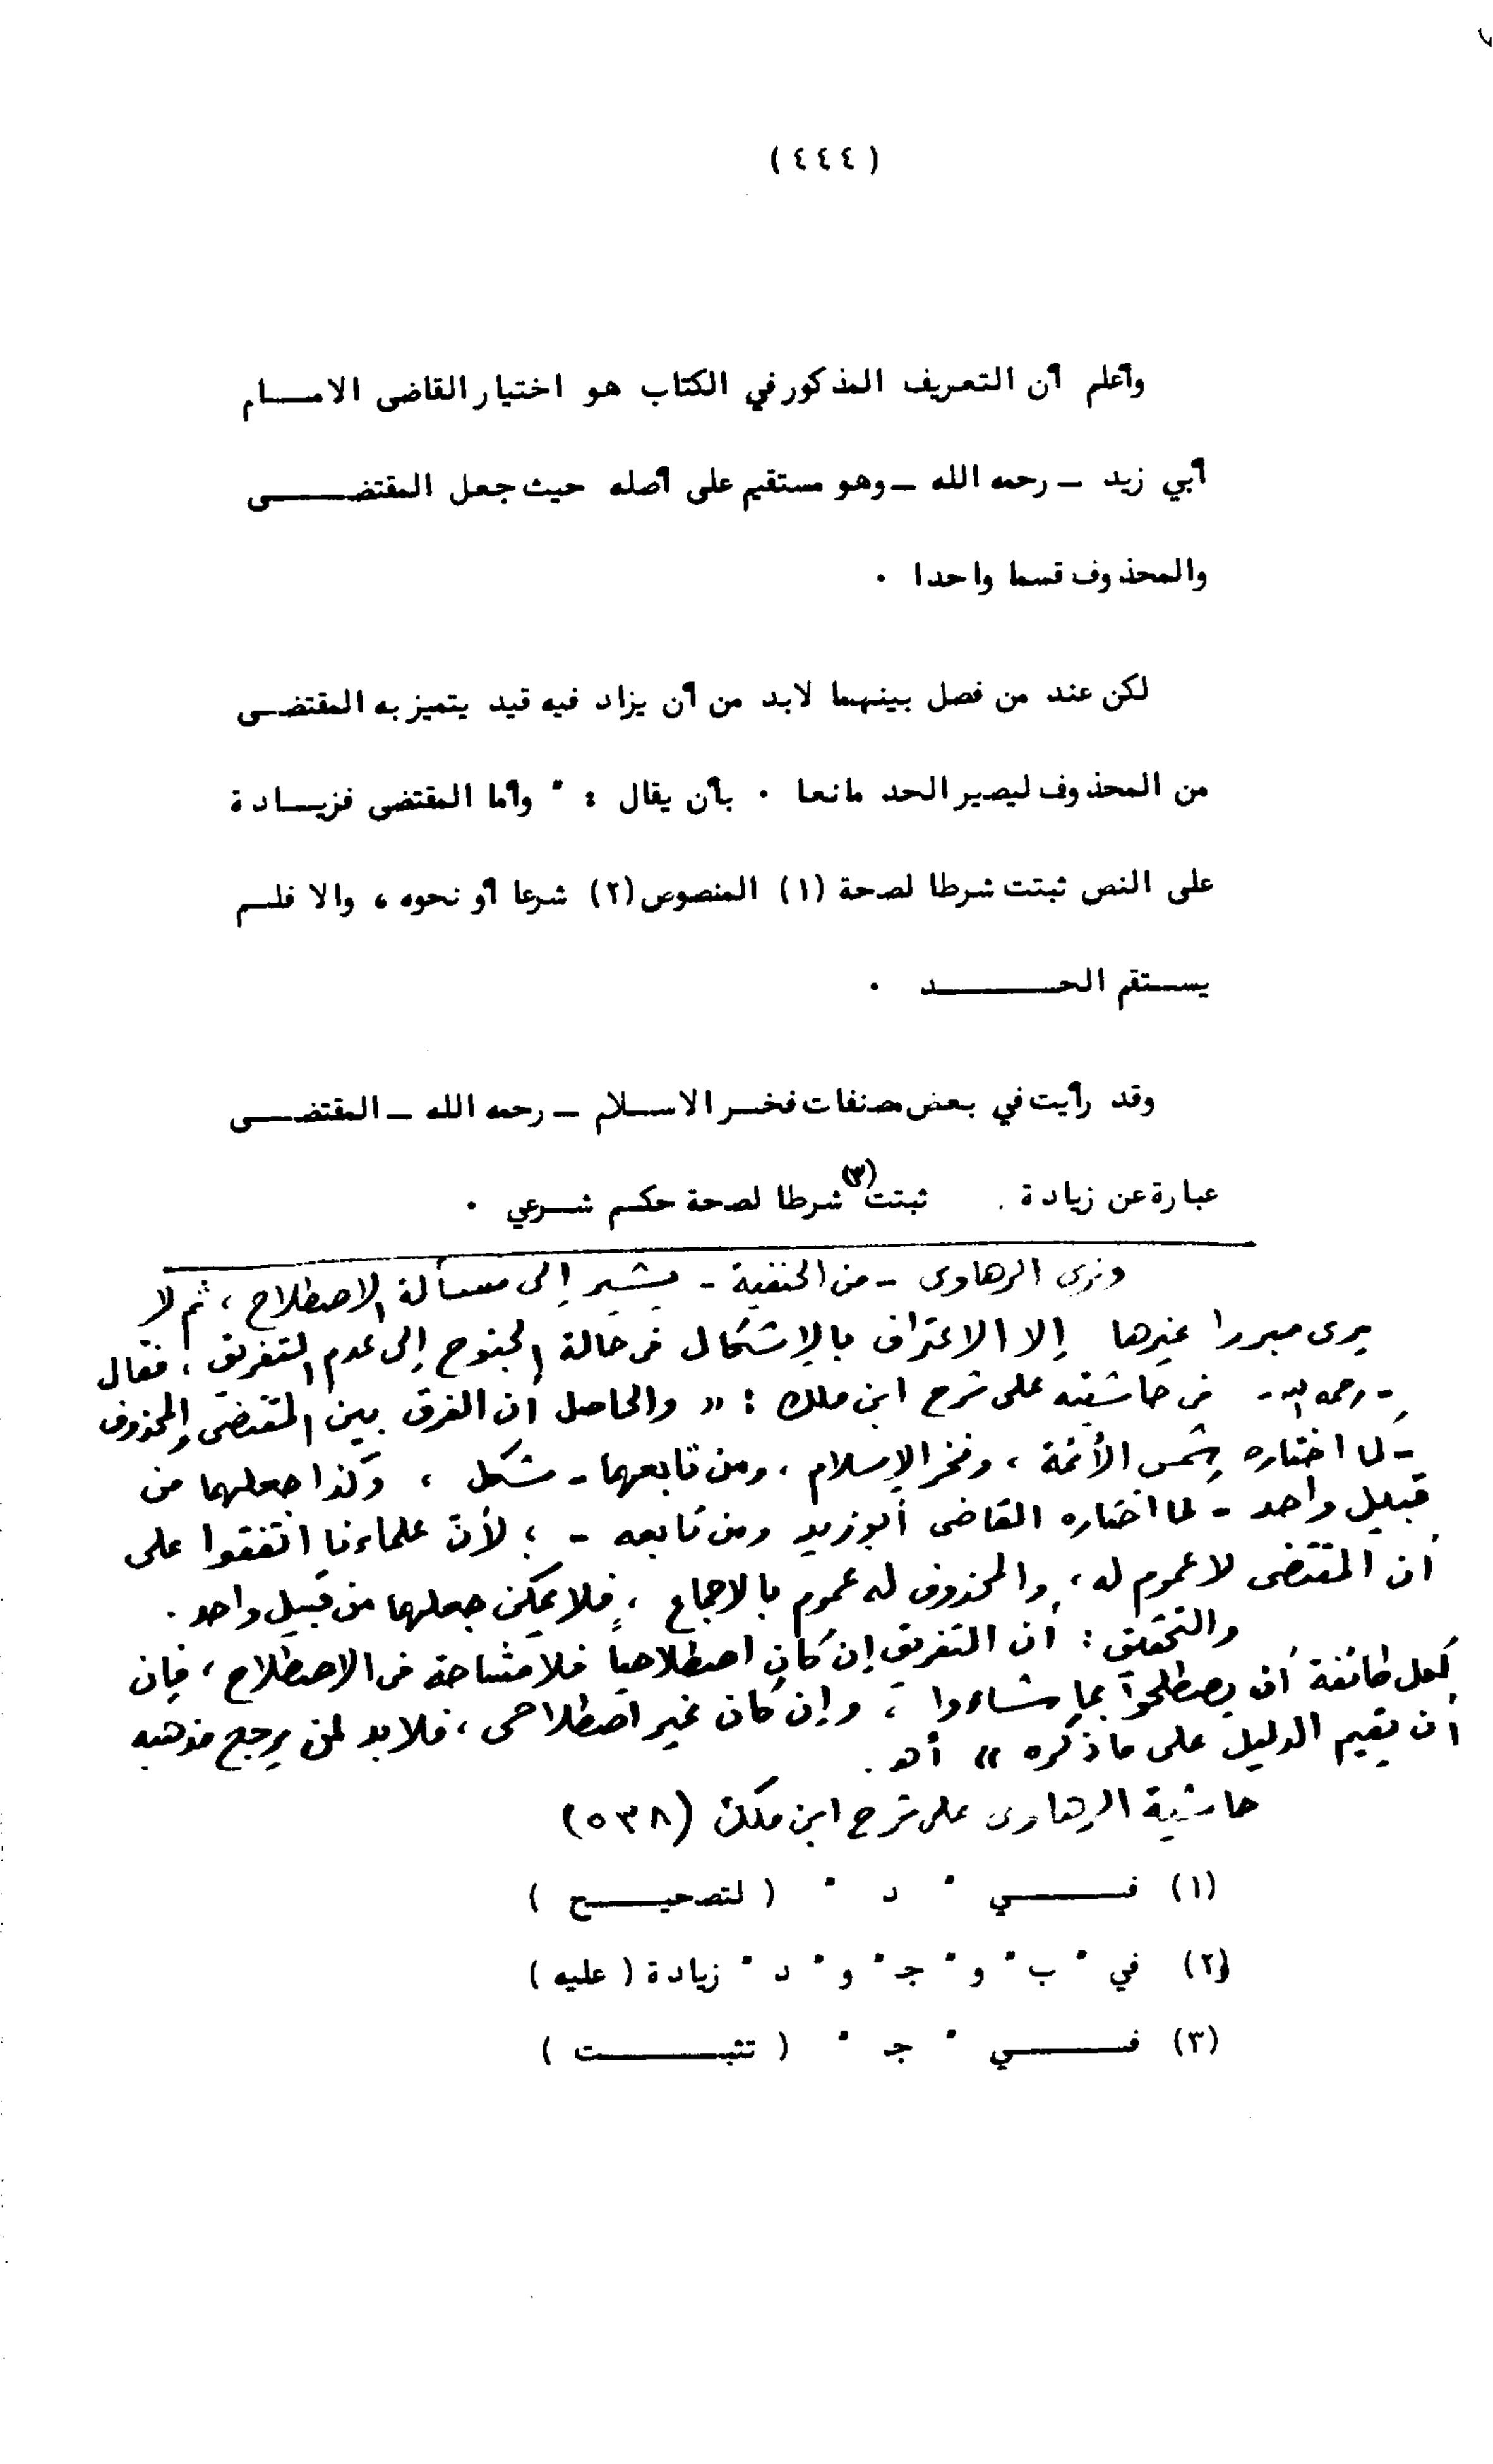 (٤٤٤)
وأعلم أن التعريف المذكور في الكتاب هو اختيار القاضى الامام
أبي زيد - رحمه الله - وهو مستقيم على أصله حيث جعل المقتضى
والمحذوف قسما واحدا .
لكن عند من فصل بينهما لابد من أن يزاد فيه قيد يتميز به المقتضى
من المحذوف ليصير الحد مانعا . بأن يقال : " وأما المقتضى فزيادة
على النص ثبتت شرطا لصحة (١) المنصوص (٢) شرعا أو نحوه ، والا فلم
يستقم الحد .
وقد رأيت في بعض مصنفات فخر الاسلام - رحمه الله - المقتضى
عبارة عن زيادة . ثبتت (٣) شرطا لصحة حكم شرعي .
ونرى الرهاوى - من الحنفية - يشير إلى مسألة الاصطلاح ، ثم لا
يرى مبررا غيرها إلا الاعتراف بالإشكال فى حالة الجنوح إلى عدم التفريق ، فقال
- رحمه الله - فى حاشيته على شرح ابن ملك : " والحاصل أن الفرق بين المقتضى والمحذوف
- لما اختاره شمس الأئمة ، وفخر الإسلام ، ومن تابعهما - مشكل ، وكذا جعلهما من
قبيل واحد - لما اختاره القاضى أبو زيد ومن تابعه - ؛ لأن علماءنا اتفقوا على
أن المقتضى لا عموم له ، والمحذوف له عموم بالاجماع ، فلا يمكن جعلهما من قبيل واحد .
والتحقيق : أن التفريق إن كان اصطلاحياً فلا مشاحة فى الاصطلاح ، فإن
لكل طائفة أن يصطلحوا بما شاءوا ، وإن كان غير اصطلاحى ، فلابد لمن يرجح مذهبه
أن يقيم الدليل على ما ذكره " أهـ .
حاشية الرهاوى على شرح ابن ملك (٥٣٨)
(١) في " د " ( لتصحيح )
(٢) في " ب " و " جـ " و " د " زيادة ( عليه )
(٣) في " جـ " ( تثبت )